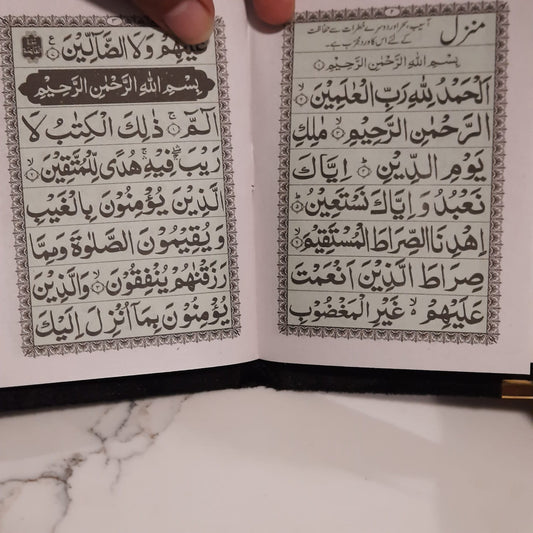 منزل
آسیب، سحر اور دوسرے خطرات سے حفاظت
کے لئے اس کا ورد مجرب ہے۔
بِسْمِ اللّٰهِ الرَّحْمٰنِ الرَّحِيْمِ
اَلْحَمْدُ لِلّٰهِ رَبِّ الْعٰلَمِيْنَ
الرَّحْمٰنِ الرَّحِيْمِ مٰلِكِ
يَوْمِ الدِّيْنِ اِيَّاكَ
نَعْبُدُ وَاِيَّاكَ نَسْتَعِيْنُ
اِهْدِنَا الصِّرَاطَ الْمُسْتَقِيْمَ
صِرَاطَ الَّذِيْنَ اَنْعَمْتَ
عَلَيْهِمْ غَيْرِ الْمَغْضُوْبِ
عَلَيْهِمْ وَلَا الضَّآلِّيْنَ
بِسْمِ اللّٰهِ الرَّحْمٰنِ الرَّحِيْمِ
الٓمّٓ ذٰلِكَ الْكِتٰبُ لَا
رَيْبَ فِيْهِ هُدًى لِّلْمُتَّقِيْنَ
الَّذِيْنَ يُؤْمِنُوْنَ بِالْغَيْبِ
وَيُقِيْمُوْنَ الصَّلٰوةَ وَمِمَّا
رَزَقْنٰهُمْ يُنْفِقُوْنَ وَالَّذِيْنَ
يُؤْمِنُوْنَ بِمَآ اُنْزِلَ اِلَيْكَ